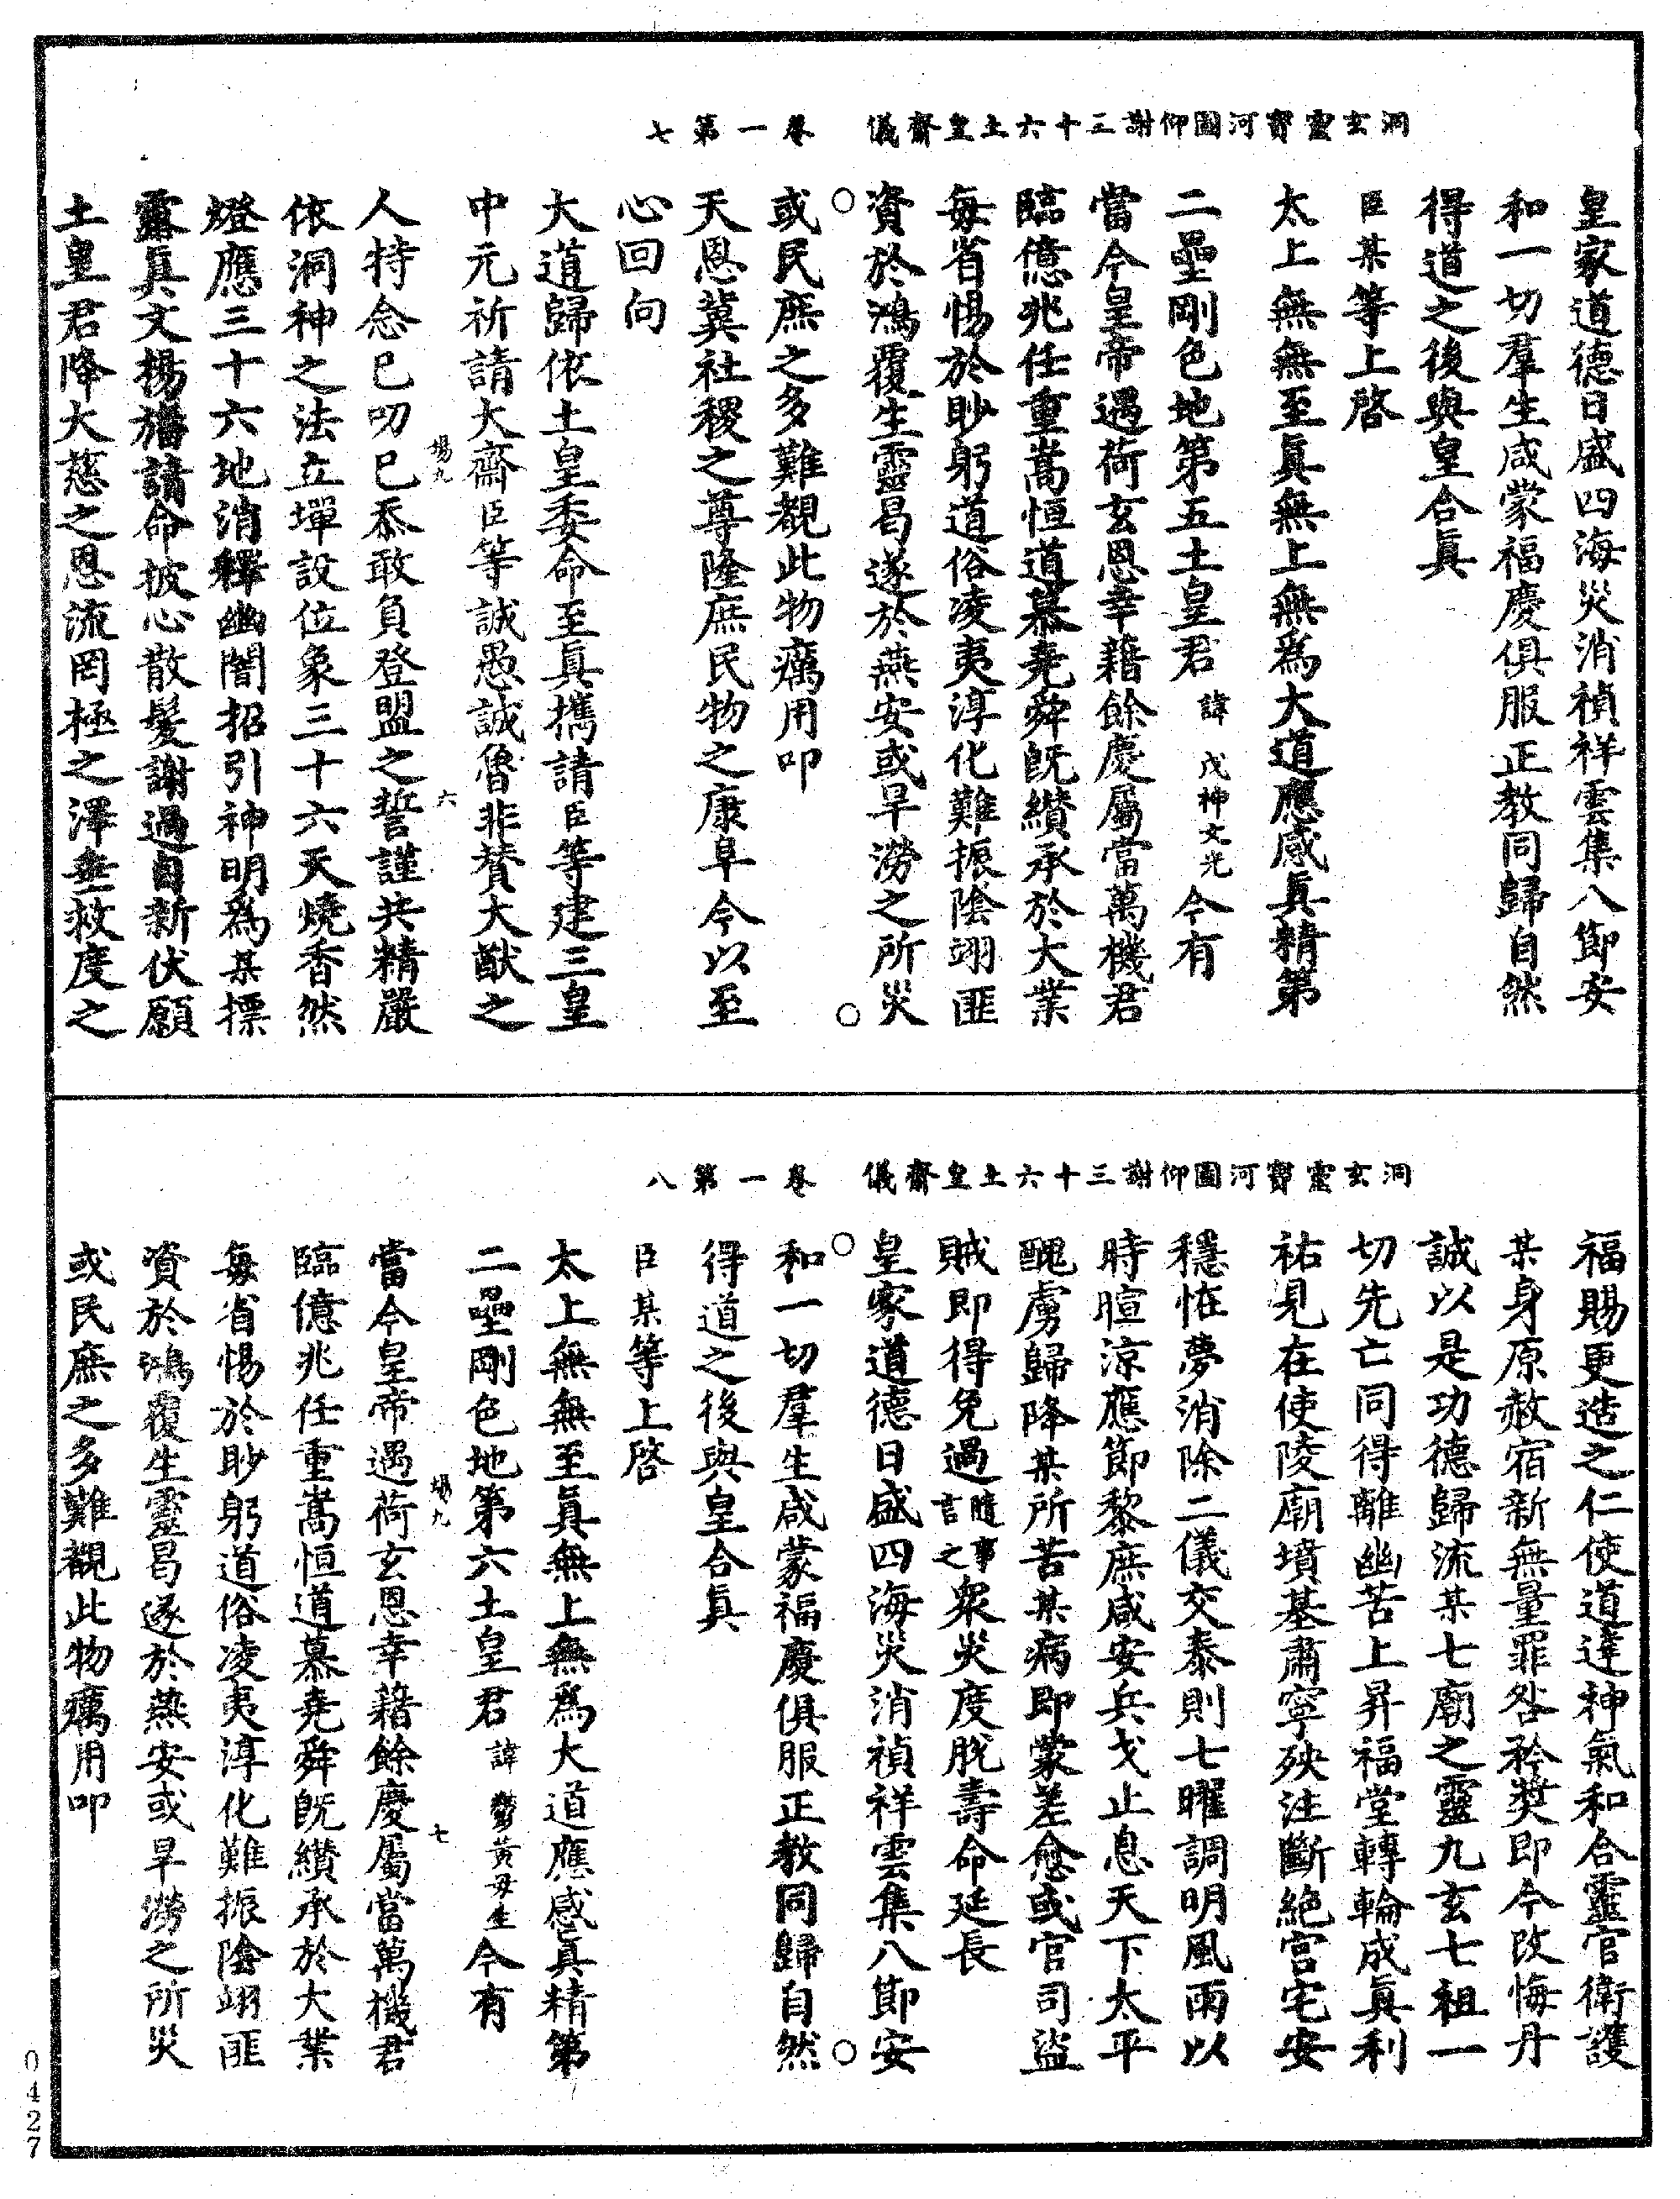 洞玄靈寶河圖仰謝三十六土皇齋儀　卷一第七
皇家道德日盛四海災消禎祥雲集八節安
和一切羣生咸蒙福慶俱服正教同歸自然
得道之後與皇合眞
臣某等上啓
太上無無至眞無上無爲大道應感眞精第
二壘剛色地第五土皇君諱戊神文光今有
當今皇帝遇荷玄恩幸藉餘慶屬當萬機君
臨億兆任重嵩恒道慕堯舜旣纘承於大業
每省惕於眇躬道俗凌夷淳化難振陰翊匪
資於鴻覆生靈曷遂於燕安或旱澇之所災
或民庶之多難覩此物癘用叩
天恩冀社稷之尊隆庶民物之康阜今以至
心回向
大道歸依土皇委命至眞攜請臣等建三皇
中元祈請大齋臣等誠愚誠魯非贊大猷之
場九　六
人特念已叨已忝敢負登盟之誓謹共精嚴
依洞神之法立墠設位象三十六天燒香然
燈應三十六地消釋幽闇招引神明爲某摽
露眞文揚旛請命披心散髮謝過自新伏願
土皇君降大慈之恩流罔極之澤垂救度之
洞玄靈寶河圖仰謝三十六土皇齋儀　卷一第八
福賜更造之仁使道達神氣和合靈官衛護
某身原赦宿新無量罪咎矜奬即今改悔丹
誠以是功德歸流某七廟之靈九玄七祖一
切先亡同得離幽苦上昇福堂轉輪成眞利
祐見在使陵廟墳墓肅寧殃注斷絕宮宅安
穩恠夢消除二儀交泰則七曜調明風雨以
時暄涼應節黎庶咸安兵戈止息天下太平
醜虜歸降某所苦某病即蒙差愈或官司盜
賊即得免過隨事言之衆災度脫壽命延長
皇家道德日盛四海災消禎祥雲集八節安
和一切羣生咸蒙福慶俱服正教同歸自然
得道之後與皇合眞
臣某等上啓
太上無無至眞無上無爲大道應感眞精第
二壘剛色地第六土皇君諱黃母生今有
場九　七
當今皇帝遇荷玄恩幸藉餘慶屬當萬機君
臨億兆任重嵩恒道慕堯舜旣纘承於大業
每省惕於眇躬道俗凌夷淳化難振陰翊匪
資於鴻覆生靈曷遂於燕安或旱澇之所災
或民庶之多難覩此物癘用叩
0427